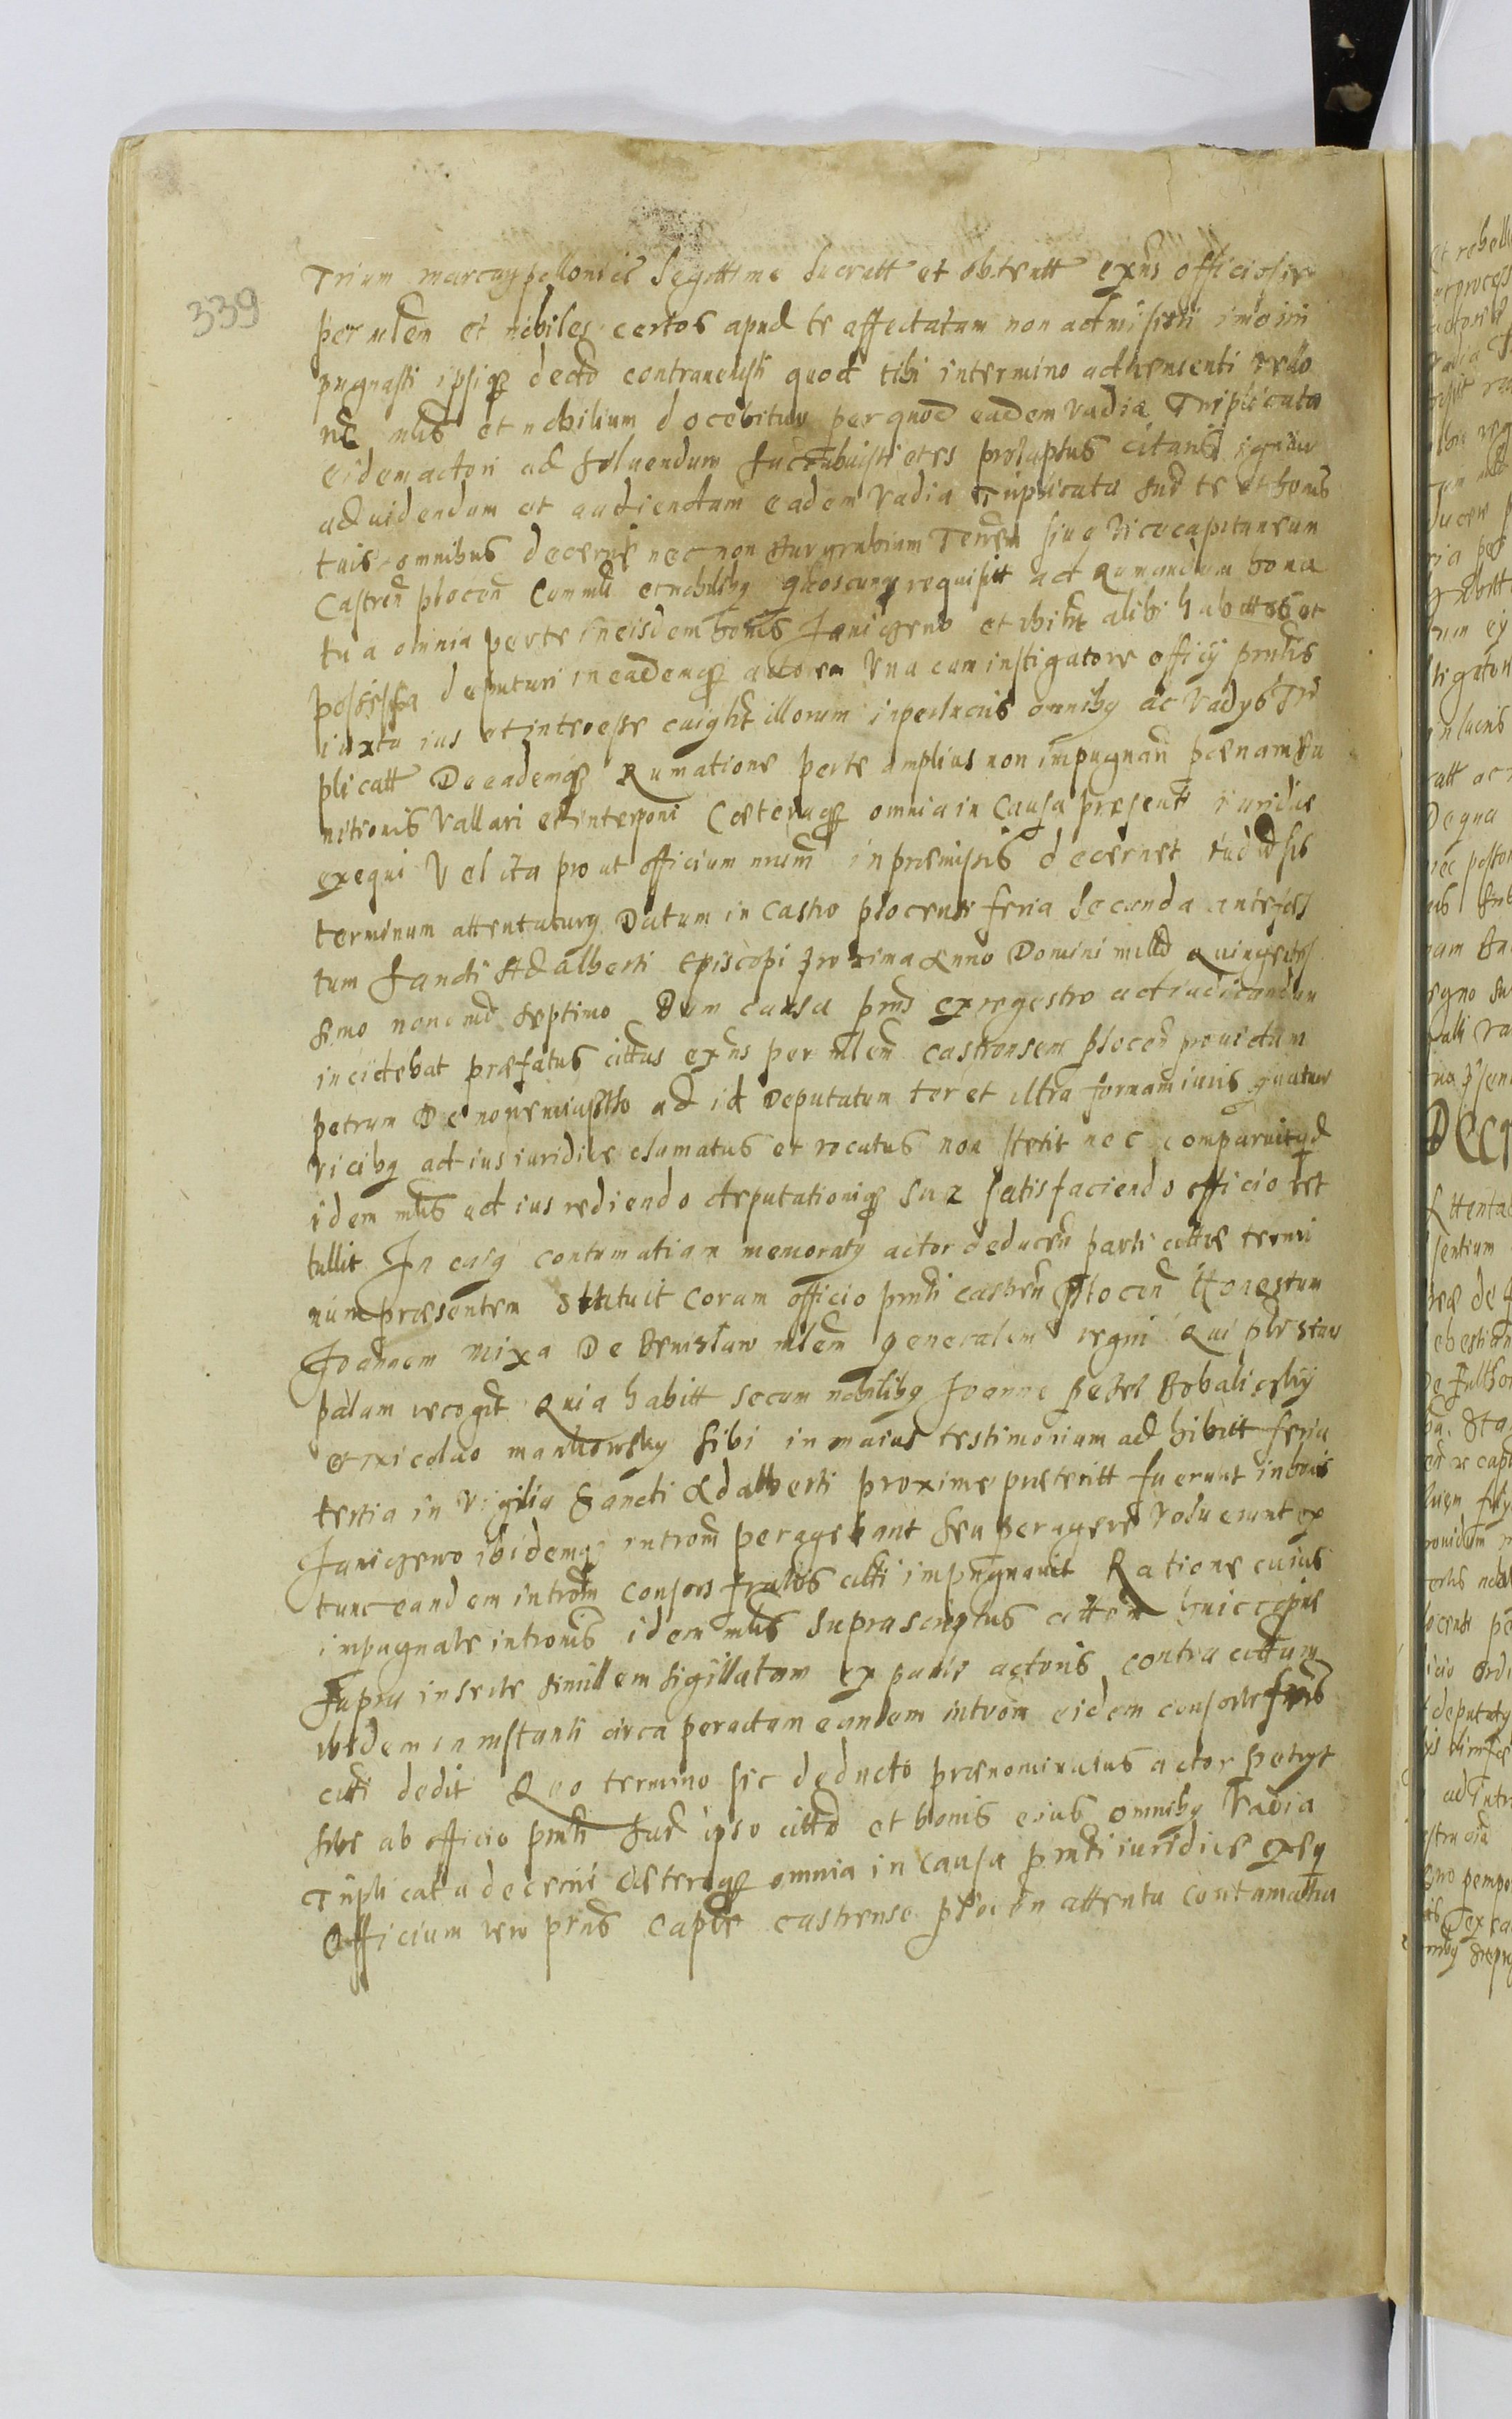 339
Trium marcarum pollonicis legittime lucratt et obtentt exns officiosie
per mlem et nobiles certos apud te affectatam non admisisti imo im
pugnasti ipsiq decto contravenisti quod tibi in termino adhaerenti rello
ne mlis et nobilium docebitur per quod eadem vadia Triplicata
eidem actori ad soluendum succubuisti et es prolaptus citaris igitur
ad uidendum et audiendum eadem vadia Triplicata sup te et bonis
tuis omnibus decerni nec non Burgrabium Terren siue vicecapitaneum
Castren plocen cum mli et nobiliby quoscunq requisitt ad Rumandum bona
tua omnia per te in eisdem bonis Janigewo et ubilit alibi habitta et
possessa deputari in eademq actorem Una cum instigatore officij prntis
iuxta ius et interesse cuiuslibt illorum in perlucris omniby ac vadys Tri
plicatt De eademq Rumatione per te amplius non impugnan poenam ba
nitionis vallari et interponi Coeteraq omnia in Causa presenti iuridice
exequi Vel ita pro ut officium nrum in praemissis decernet iudicisis
terminum attentaturq Datum in castro plocensi feria secunda ante fes
tum Sancti Adalberti Episcopi proxima Anno Domini milld Quingentes
simo nonomd septimo Dum causa prns ex regestro ad iudicandum
incidebat praefatus cittus exns per mlem castrensem plocen prouidum
petrum De nowemiastho ad id Deputatum ter et ultra formam iuris quatuor
viciby ad ius iuridice clamatus et vocatus non stetit nec comparuit qd
idem mlis ad ius rediendo deputationiq suae satisfaciendo officio ret
tullit In cuig contumatiam memoraty actor deducen parti cittae termi
num praesentem statuit coram officio prnti castren plocen Honestum
Joannem Mixa De Bemislaw mlem generalem regni Qui plr stans
palam recogt Quia habitt secum nobiliby Joanne petri Bobalicskij
et Nicolao mankowsky sibi in maius testimonium adhibitt feria
tertia in vigilia Sancti Adalberti proxime praeteritt fuerunt in bnis
Janigewo ibidemq introm peragebant seu peragere voluerunt ex
tunc eandem introm consors fratris citti impugnauit Ratione cuius
impugnate intronis idem mlis suprascriptus cittem huic copie
supra inserte similem sigillatam ex parte actoris contra cittum
ibidem in instanti circa peractam eandem introm eidem consorte fris
citti dedit Quo termino sic deducto praenominatus actor petyt
sibi ab officio prnti sup ipso citto et bonis eius omniby Vadia
Triplicata decerni caeteraq omnia in causa prnti iuridice exeq
Officium vero prns capte castrense plocen attenta contumatia